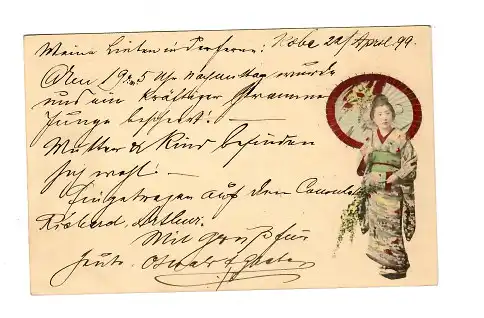 Meine Lieben in der Ferne: Kobe 22/April 99.
Am 19. 5 Uhr Nachmittag wurde
uns ein kräftiger strammer
Junge beschert! —
Mutter & Kind befinden
sich wohl! —
Eingetragen auf dem Consulat
Richard, Arthur.
Mit Gruß für
heute